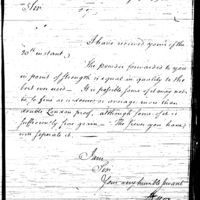 Sir
I have received yours of the
20th instant.
The powder forwarded to you
in point of strength is equal in quality to the
best ever used. It is possible some of it may not
be so fine as
double London proof, although some of it is
sufficiently fine grain. The sieves you have
will separate it.
I am
Sir
Your very humble servant